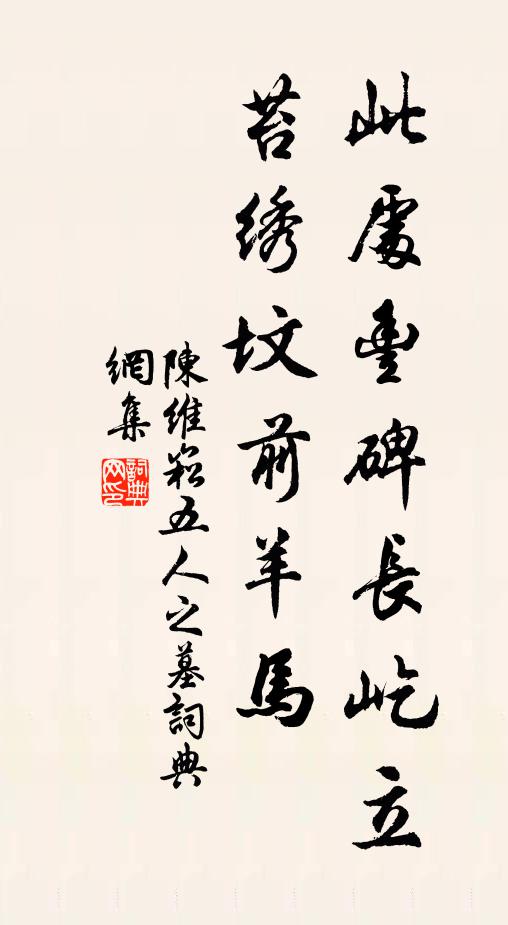 此處豐碑長屹立
苔綉坟前羊馬
陳維崧五人之墓詞典
網集
詞典
网印